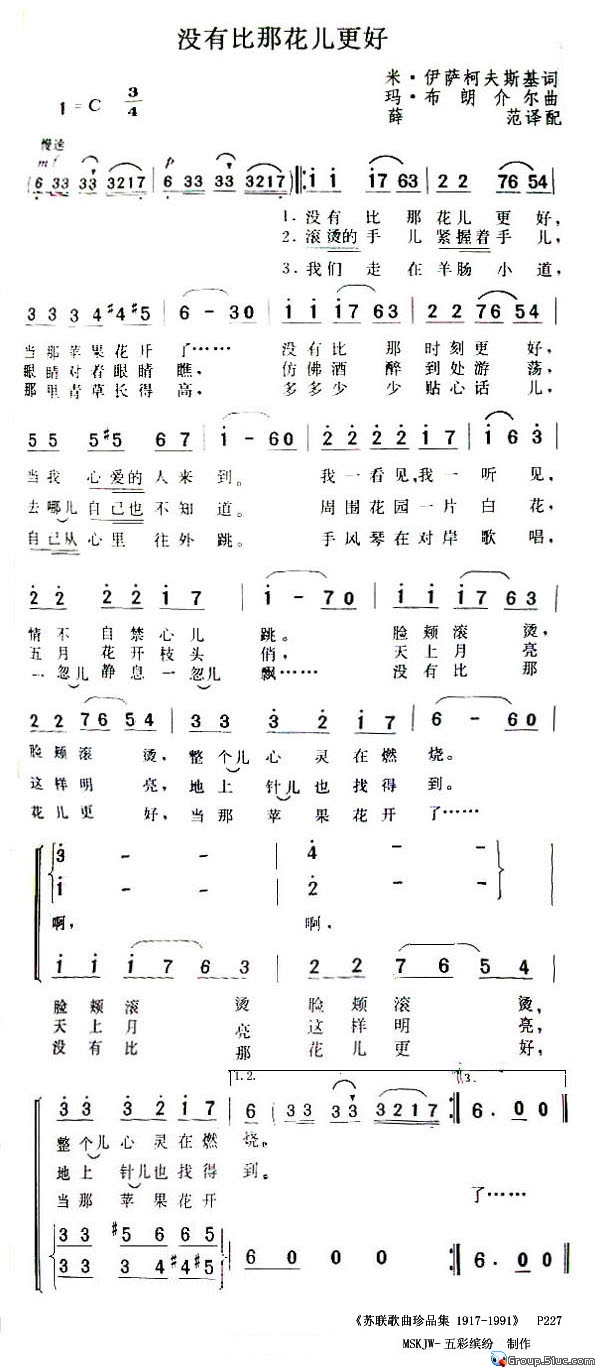 没有比那花儿更好
米·伊萨柯夫斯基词
1=C 3/4
玛·布朗介尔曲
薛 范译配
慢速
mf p
(6 33 33 3217 | 6 33 33 3217):‖ i i i7 63 | 2 2 76 54 |
1.没有比那花儿更好，
2.滚烫的手儿紧握着手儿，
3.我们走在羊肠小道，
3 3 3 3 4 #4 #5 | 6 - 30 | i i i7 63 | 2 2 76 54 |
当那苹果花开了…… 没有比那时刻更好，
眼睛对着眼睛瞧， 仿佛酒醉到处游荡，
那里青草长得高， 多多少少贴心话儿，
5 5 5#5 6 7 | i - 60 | 2 2 2 2 i 7 | i 6 3 |
当我心爱的人来到。 我一看见，我一听见，
去哪儿自己也不知道。 周围花园一片白花，
自己从心里往外跳。 手风琴在对岸歌唱，
2 2 2 2 i 7 | i - 70 | i i i7 63 |
情不自禁心儿跳。 脸颊滚烫，
五月花开枝头俏， 天上月亮
一忽儿静息一忽儿飘…… 没有比那
2 2 76 54 | 3 3 3 2 i 7 | 6 - 60 |
脸颊滚烫，整个儿心灵在燃烧。
这样明亮，地上针儿也找得到。
花儿更好，当那苹果花开了……
3 - - 4 - -
i - - 2 - -
啊， 啊，
i i i 7 6 3 | 2 2 7 6 5 4
脸颊滚烫 脸颊滚烫，
天上月亮 这样明亮，
没有比那 花儿更好，
1.2. 3.
3 3 3 2 i 7 | 6 (33 33 3217 :‖ 6. 0 0 ‖
整个儿心灵在燃烧。
地上针儿也找得到。
当那苹果花开 了……
3 3 #5 6 6 5 | 6 0 0 0 0 0 :‖ 6. 0 0 ‖
3 3 3 4 #4 #5
《苏联歌曲珍品集 1917-1991》 P227
MSKJW-五彩缤纷 制作
Group.51uc.com